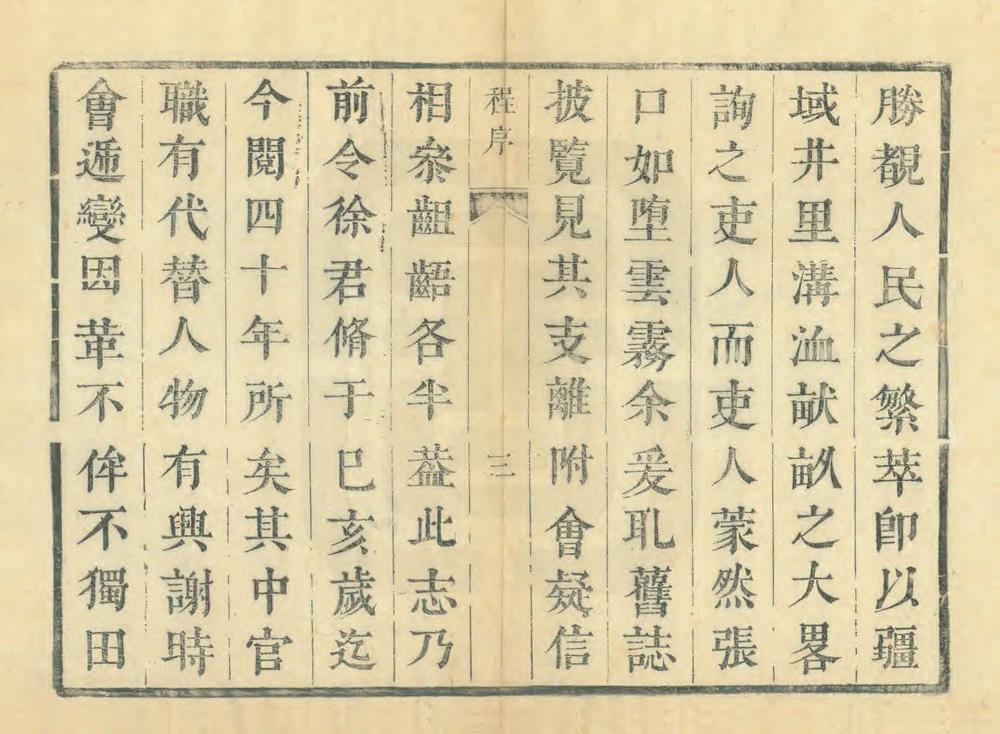 勝覩人民之繁萃卽以疆
域井里溝洫畎畝之大畧
詢之吏人而吏人蒙然張
口如墮雲霧余爰取舊誌
披覽見其支離附會疑信
程序
三
相叅齟齬各半葢此志乃
前令徐君脩于巳亥歲迄
今閱四十年所矣其中官
職有代替人物有興謝時
會遞變因革不侔不獨田